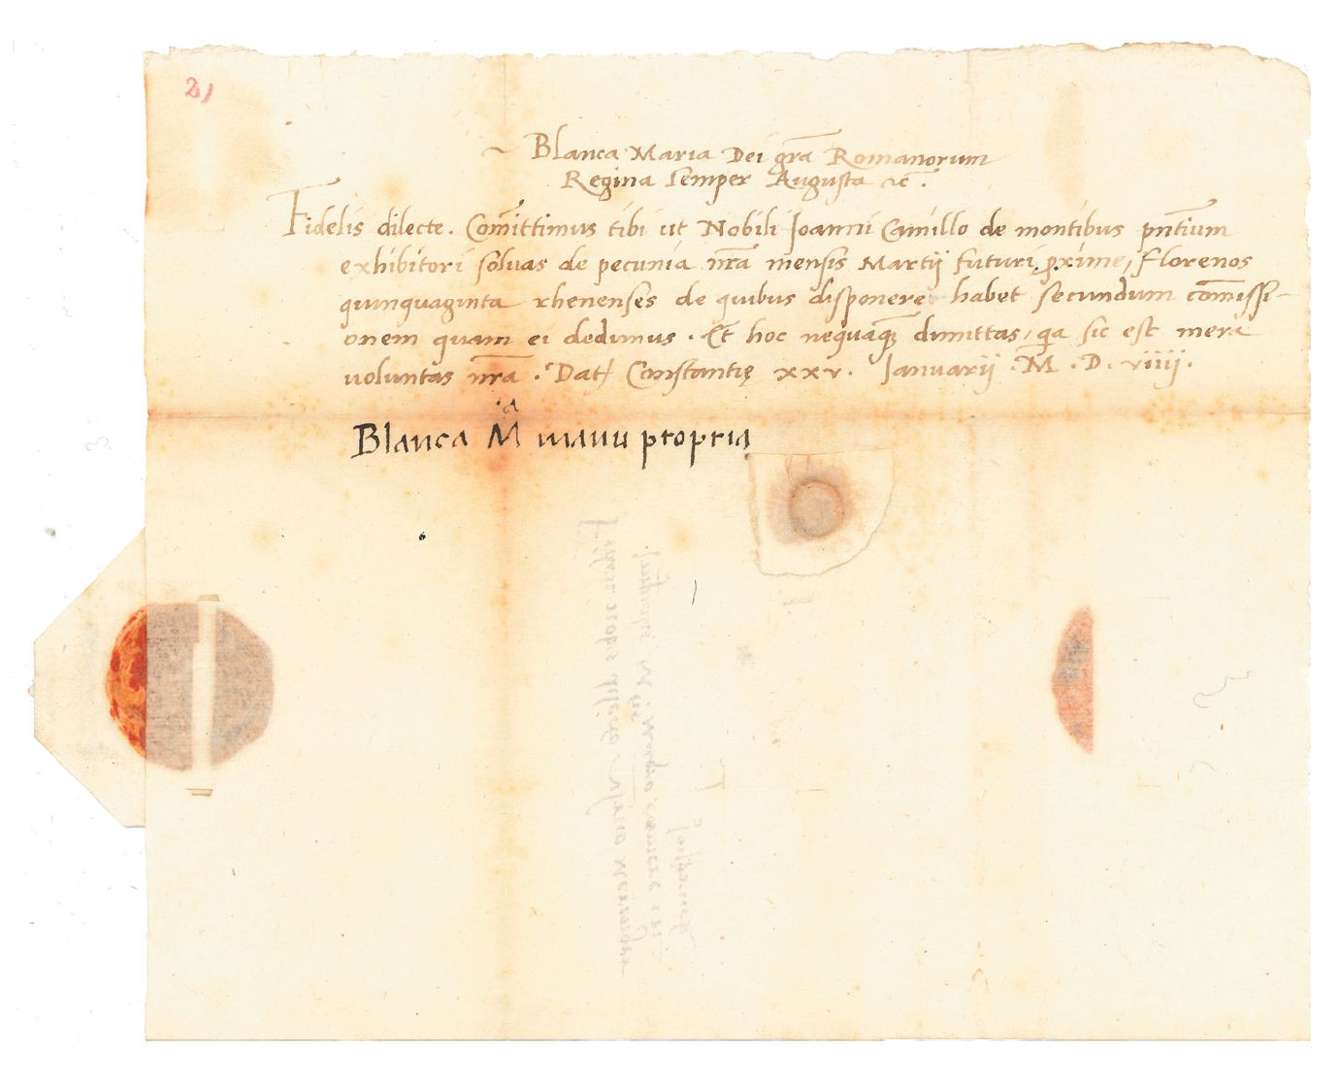 21
Blanca Maria Dei gr̃a Romanorum
Regina Semper Augusta ⁊c̃.
Fidelis dilecte. Com̃ittimus tibi ut Nobili Joanni Camillo de montibus pñtium
exhibitori solvas de pecunia nr̃a mensis Martij futuri proxime, florenos
quinquaginta rhenenses de quibus disponere habet secundum com̃issi-
onem quam ei dedimus. Et hoc nequaq̃ dimittas, q̃a sic est mera
voluntas nr̃a. Dat Constantię xxv. Januarij .M̃.D.viiij.
Blanca Mᵃ manu propria